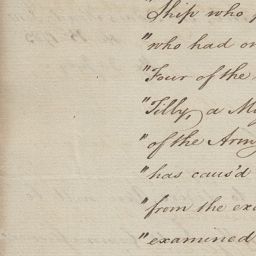 "Ship who
"who had on
"Four of the
"Tilly, a M
"of the Army
"has caus'd
"from the ex
"examined